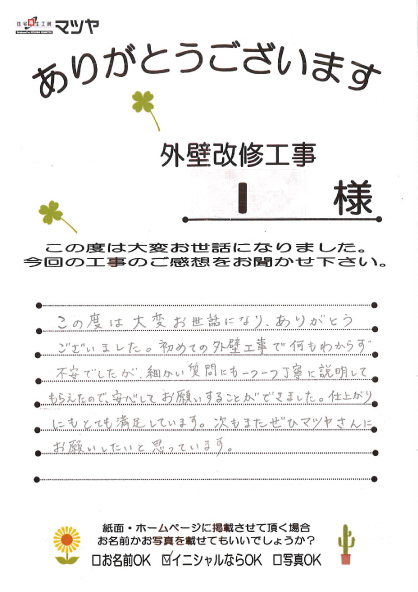 住宅工房 マツヤ
ありがとうございます
外壁改修工事
I 様
この度は大変お世話になりました。
今回の工事のご感想をお聞かせ下さい。
この度は大変お世話になり、ありがとう
ございました。初めての外壁工事で何もわからず
不安でしたが、細かい質問にも一つ一つ丁寧に説明して
もらえたので、安心して、お願いすることができました。仕上がり
にもとても満足しています。次もまたぜひマツヤさんに
お願いしたいと思っています。
紙面・ホームページに掲載させて頂く場合
お名前かお写真を載せてもいいでしょうか？
□お名前OK ☑イニシャルならOK □写真OK